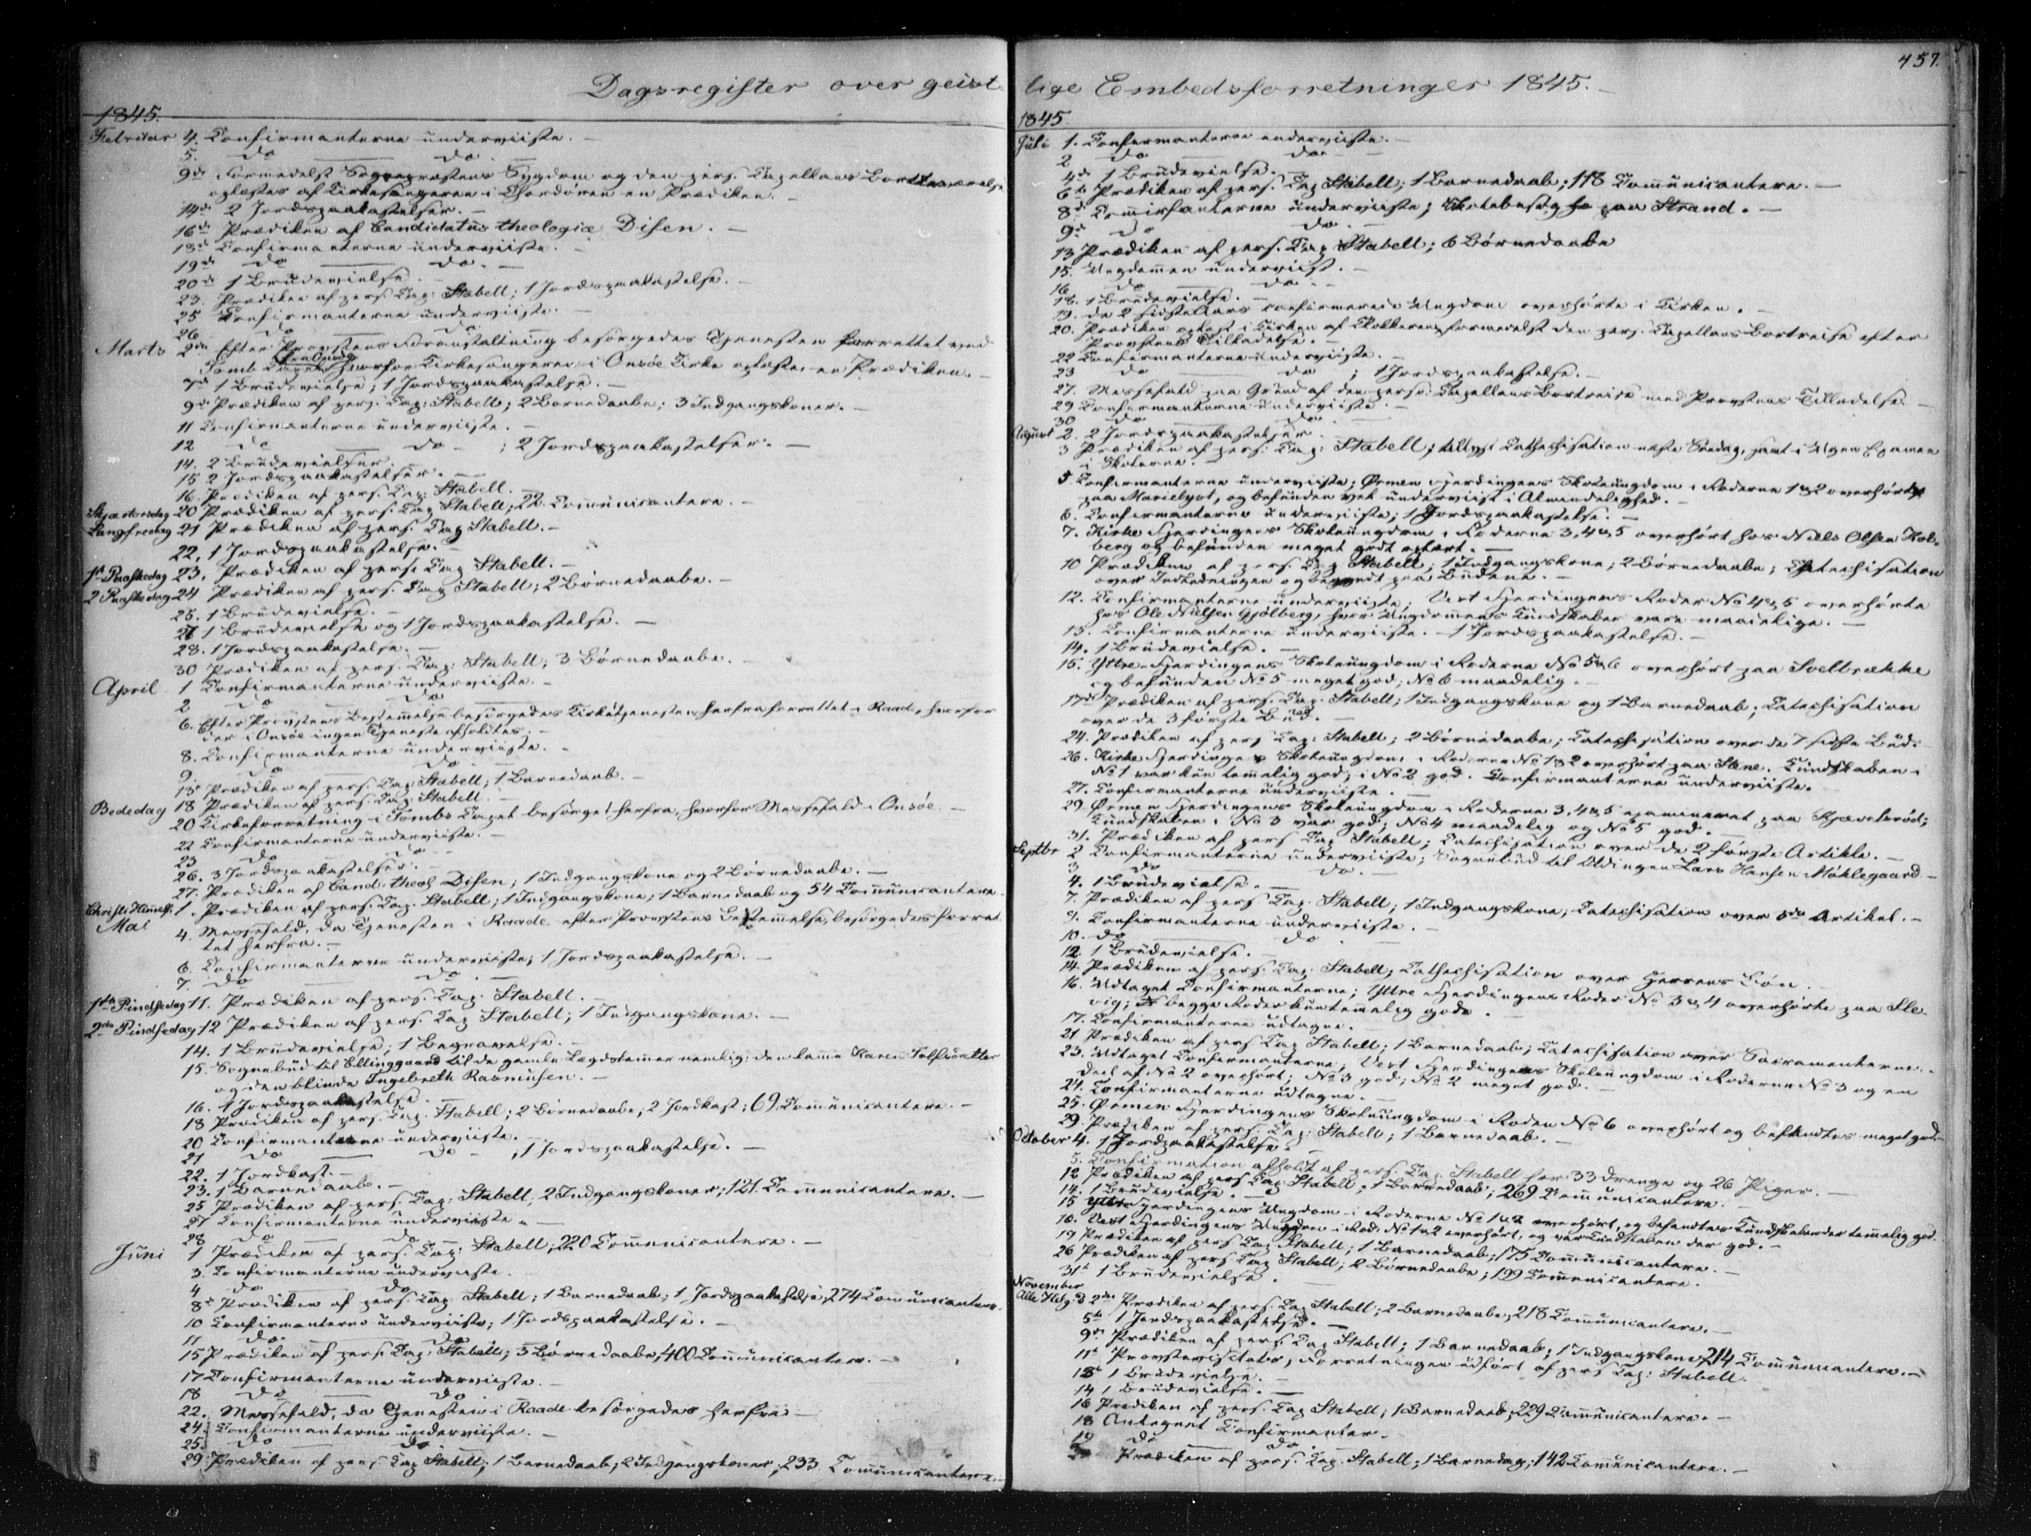 457.
Dagsregister over geist-
lige Embedsforretninger 1845.
1845.
Februar 4. Confirmanterne underviiste. –
5. do do
9de Formedelst Sognepræstens Sygdom og den pers. Capellans Bortreise
oplæstes af Kirkesangeren i Chordøren en Prædiken. –
14de 2 Jordspaakastelser. –
16de Prædiken af Candidatus theologiæ Disen. –
18de Confirmanterne underviiste. –
19de do do. –
20de 1 Brudevielse. –
23. Prædiken af pers. Cap: Stabell; 1 Jordspaakastelse. –
25 Confirmanterne underviiste. –
26. do do
Marts 2den Efter Provstens Foranstaltning besørgedes Tjenesten forrettet ved
Tomb hvorfor Kirkesangeren i Onsøe Kirke oplæste en Prædiken. –
7de 1 Brudevielse; 1 Jordspaakastelse. –
9de Prædiken af pers. Cap: Stabell; 2 Børnedaabe; 3 Indgangskoner. –
11 Confirmanterne underviiste. –
12 do do – ; 2 Jordspaakastelser. –
14. 2 Brudevielser.
15 2 Jordspaakastelser. –
16. Prædiken af pers. Cap: Stabell. –
Skjærtorsdag 20 Prædiken af pers. Cap Stabell; 22 Communicantere. –
Langfredag 21 Prædiken af pers. Cap Stabell. –
22. 1 Jordspaakastelse. –
1ste Paaskedag 23. Prædiken af pers. Cap Stabell. –
2 Paaskedag 24 Prædiken af pers. Cap Stabell; 2 Børnedaabe. –
25. 1 Brudevielse. –
27 1 Brudevielse og 1 Jordspaakastelse. –
28. 1 Jordspaakastelse. –
30 Prædiken af pers. Cap: Stabell; 3 Børnedaabe. –
April 1 Confirmanterne underviiste. –
2 do do
6. Efter Provstens Bestemmelse besørgedes Kirketjenesten herfra forrettet i Raade, hvorfor
der i Onsøe ingen Tjeneste afholdtes. –
8. Confirmanterne underviiste. –
9. do do
13 Prædiken af pers. Cap: Stabell; 1 Barnedaab. –
Bededag 18 Prædiken af pers. Cap: Stabell. –
20 Kirkeforretning i Tombs Capel besørget herfra, hvorfor Messefald i Onsøe. –
22 Confirmanterne underviiste. –
23 do do
26. 3 Jordspaakastelser. –
27. Prædiken af Cand. theol Disen; 1 Indgangskone og 2 Børnedaabe. –
Christi Himmelf. 1. Prædiken af pers. Cap. Stabell; 1 Indgangskone; 1 Barnedaab og 54 Communicantere.
Mai
4. Messefald, da Tjenesten i Raade efter Provstens Bestemmelse besørgedes forret-
tet herfra. –
6. Confirmanterne underviiste; 1 Jordspaakastelse. –
7. do do. –
1ste Pindsedag 11. Prædiken af pers. Cap. Stabell. –
2den Pindsedag 12 Prædiken af pers. Cap Stabell; 1 Indgangskone. –
14. 1 Brudevielse; 1 Begravelse. –
15. Sognebud til Ellinggaard til de gamle Lægdslemmer nemlig: den lamme Karen
og den blinde Ingebreth Rasmusen. –
16. 1 Jordspaakastelse. –
18 Prædiken af pers. Cap. Stabell; 2 Børnedaabe, 2 Jordkast; 69 Communicantere. –
20 Confirmanterne underviiste. –
21 do do – ; 1 Jordspaakastelse. –
22. 1 Jordkast. –
23. 1 Barnedaab. –
25 Prædiken af pers. Cap: Stabell, 2 Indgangskoner; 121. Communicantere. –
27 Confirmanterne underviiste. –
28 do do
Juni 1 Prædiken af pers. Cap: Stabell; 220 Communicantere. –
3. Confirmanterne underviiste.
4 do do
8de Prædiken af pers. Cap. Stabell; 1 Barnedaab; 1 Jordspaakastelse; 274 Communicantere.
10 Confirmanterne underviiste; 1 Jordspaakastelse. –
11 do do
15 Prædiken af pers. Cap: Stabell; 3 Børnedaabe, 400 Communicantere. –
17 Confirmanterne underviiste. –
18 do do
22. Messefald, da Tjenesten i Raade besørgedes herfra –
24. Confirmanterne underviiste. –
25. do do
29. Prædiken af pers. Cap Stabell; 1 Barnedaab; 2 Indgangskoner; 233 Communicantere. –
1845
Juli 1. Confirmanterne underviiste. –
2 do do. –
4de 1 Brudevielse. –
6te Prædiken af pers. Cap Stabell; 1 Barnedaab; 118 Communicantere. –
8de Confirmanterne underviiste; Skolebesøg paa Strand. –
9. do do. –
13 Prædiken af pers. Cap. Stabell; 6 Børnedaabe
15. Ungdommen underviist. –
16. do do. –
18. 1 Brudevielse. –
19. De 2 sidste Aars confirmerede Ungdom overhørte i Kirken. –
20. Prædiken oplæst i Kirken af Klokkeren formedelst den pers. Capellans Bortreise efter
Provstens Tilladelse. –
22 Confirmanterne underviiste. –
23 do do ; 1 Jordspaakastelse. –
27. Messefald paa Grund af den pers: Capellans Bortreise med Provstens Tilladelse. –
29 Confirmanterne underviiste. –
30 do do. –
August 2. 2 Jordspaakastelser. –
3 Prædiken af pers: Cap: Stabell; tillyst Cathechisation næste Søndag, samt i Ugen Examen
i Skolerne. –
5 Confirmanterne underviiste; Ørmen Fjerdingens Skoleungdom i Roderne 1 & 2 overhørte
paa Marielyst, og befunden vel underviist i Almindelighed. –
6. Confirmanterne underviiste; 1 Jordspaakastelse. –
7. Kirke Fjerdingens Skoleungdom i Roderne 3, 4 & 5 overhørt hos Niels Olsen Kol-
berg og befunden meget godt oplært. –
10 Prædiken af pers Cap Stabell; 1 Indgangskone; 2 Børnedaabe; Catechisation
over Indledningen og begyndt paa Budene. –
12. Confirmanterne underviiste; Vest Fjerdingens Roder No 4 & 5 overhørte
hos Ole Nielsen Gjølberg, hvor Ungdommens Kundskaber vare maadelige. –
13. Confirmanterne underviiste. – 1 Jordspaakastelse. –
14. 1 Brudevielse. –
15. Yttre Fjerdingens Skoleungdom i Roderne No 5 & 6 overhørt paa
og befunden No 5 meget god; No 6 maadelig. –
17de Prædiken af pers. Cap. Stabell; 1 Indgangskone og 1 Barnedaab; Catechisation
over de 3 første Bud. –
24. Prædiken af pers Cap: Stabell; 2 Børnedaabe; Catechisation over de 7 sidste Bud. –
26. Kirke Fjerdingens Skoleungdom i Roderne No 1 & 2 overhørt paa Kundskaben i
No 1 var kun temmelig god; i No 2 god. Confirmanterne underviiste.
27. Confirmanterne underviiste. –
29 Ørmen Fjerdingens Skoleungdom i Roderne 3, 4 & 5 examineret paa
Kundskaben i No 3 var god; No 4 maadelig og No 5 god. –
31. Prædiken af pers Cap Stabell; Catechisation over de 2 første Artikle. –
Septbr 2 Confirmanterne underviiste; Sognebud til Lars Hansen Møklegaard –
3 do do. –
4. 1 Brudevielse. –
7. Prædiken af pers Cap. Stabell; 1 Indgangskone; Catechisation over 3die Artikel. –
9. Confirmanterne underviiste. –
10. do do –
12 1 Brudevielse. –
14. Prædiken af pers. Cap. Stabell; Cathechisation over Herrens Bøn. –
16. Udtaget Confirmanterne; Yttre Fjerdingens Roder No 3 & 4 overhørte paa Ele-
vig; begge Roder kun temmelig gode. –
17. Confirmanterne udtagne. –
21 Prædiken af pers Cap Stabell; 1 Barnedaab; Catechisation over Sacramenterne. –
23. Udtaget Confirmanterne; Vest Fjerdingens Skoleungdom i Roderne No 3 og en
Deel af No 2 overhørt; No 3 god; No 2 meget god. –
24. Confirmanterne udtagne. –
25. Ørmen Fjerdingens Skoleungdom i Roden No 6 overhørt og befandtes meget god. –
29. Prædiken af pers. Cap: Stabell; 1 Barnedaab. –
October 4. 1 Jordspaakastelse. –
5. Confirmation afholdt af pers. Cap: Stabell for 33 Drenge og 26 Piger. –
12 Prædiken af pers Cap Stabell; 1 Barnedaab; 269 Communicantere. –
14. 1 Brudevielse. –
15 Yttre Fjerdingens Ungdom i Roderne No 1 & 2 overhørt, og befandtes Kundskaben der temmelig god.
16. Vest Fjerdingens Ungdom i Rod. No 1 & 2 overhørt, og var Kundskaben der god. –
19 Prædiken af pers Cap Stabell; 1 Barnedaab; 175 Communicantere. –
26 Prædiken af pers Cap Stabell; 2 Børnedaabe; 199 Communicantere. –
31te 1 Brudevielse. –
November
Alle Helg. D 2den Prædiken af pers. Cap Stabell; 2 Børnedaabe; 218 Communicantere. –
5te 1 Jordspaakastelse. –
9de Prædiken af pers. Cap Stabell; 1 Barnedaab; 1 Indgangskone; 214 Communicantere. –
11te Provstevisitats; Forretningen udført af pers Cap: Stabell.
13de 1 Brudevielse. –
14 1 Brudevielse. –
16 Prædiken af pers. Cap Stabell; 1 Barnedaab; 229 Communicantere. –
18 Antegnet Confirmanter. –
19 do do
Prædiken af pers. Cap. Stabell; 1 Barnedaab; 142 Communicantere. –